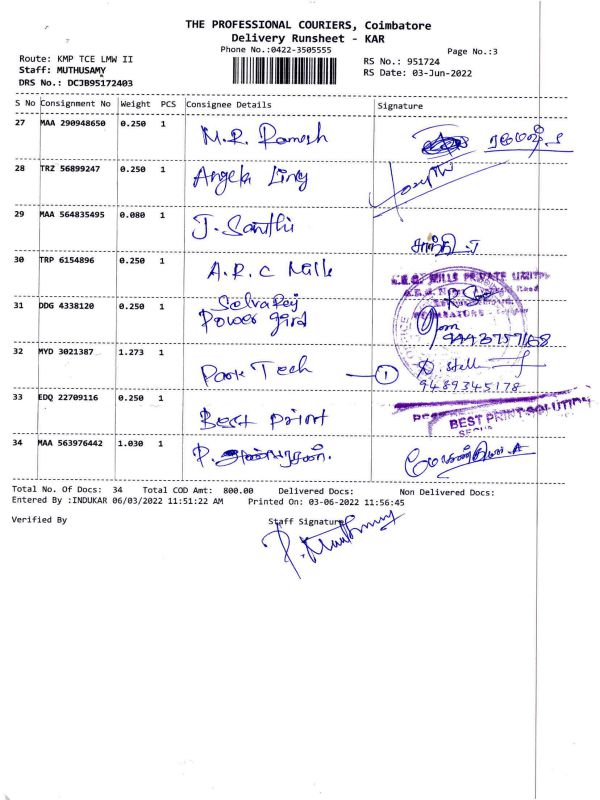 THE PROFESSIONAL COURIERS, Coimbatore
Delivery Runsheet - KAR
Phone No.:0422-3505555
Page No.:3
Route: KMP TCE LMW II
RS No.: 951724
Staff: MUTHUSAMY
RS Date: 03-Jun-2022
DRS No.: DCJB95172403
S No Consignment No Weight PCS Consignee Details Signature
27 MAA 290948650 0.250 1 M.R. Ramesh
28 TRZ 56899247 0.250 1 Angela Ling
29 MAA 564835495 0.080 1 J. Santhi சாந்தி .J
30 TRP 6154896 0.250 1 A.R.C Mills
MILLS PRIVATE LIMITED
31 DDG 4338120 0.250 1 Selvaraj
Power gird
32 MYD 3021387 1.273 1 Park Tech 1 D. Stell
9489345178
33 EDQ 22709116 0.250 1 Best print
BEST PRINT SOLUTION
34 MAA 563976442 1.030 1 P.
Total No. Of Docs: 34 Total COD Amt: 800.00 Delivered Docs: Non Delivered Docs:
Entered By :INDUKAR 06/03/2022 11:51:22 AM Printed On: 03-06-2022 11:56:45
Verified By Staff Signature
P. Muthusamy